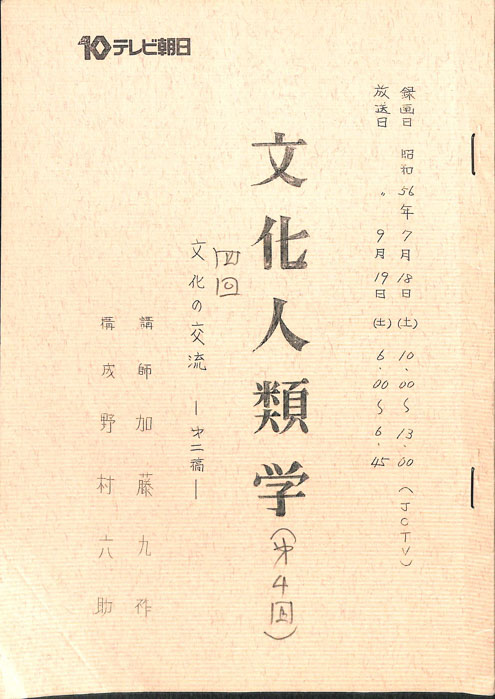 10テレビ朝日
録画日 昭和56年7月18日(土) 10.00〜13.00(JCTV)
放送日 〃 9月19日(土) 6.00〜6.45
文化人類学(才4回)
四回
文化の交流 ー才二稿ー
講師 加藤九祚
構成 野村六助